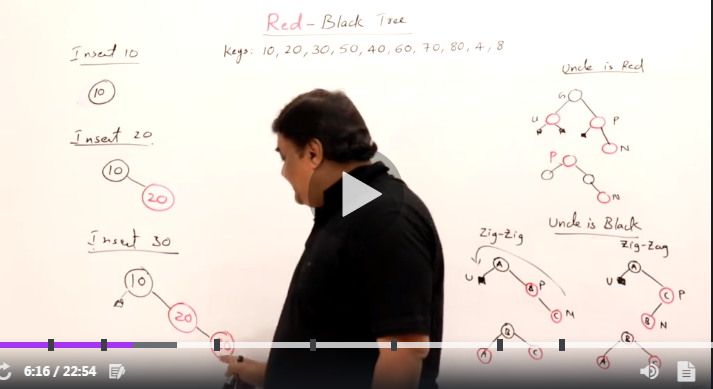 Red-Black Tree
Keys: 10, 20, 30, 50, 40, 60, 70, 80, 4, 8
Insert 10
10
Insert 20
10
20
Insert 30
10
20
Uncle is Red
G
U
P
N
P
N
Uncle is Black
Zig-Zig
A
U
B
P
C
N
B
A
C
Zig-Zag
A
U
C
P
B
N
B
A
C
6:16 / 22:54